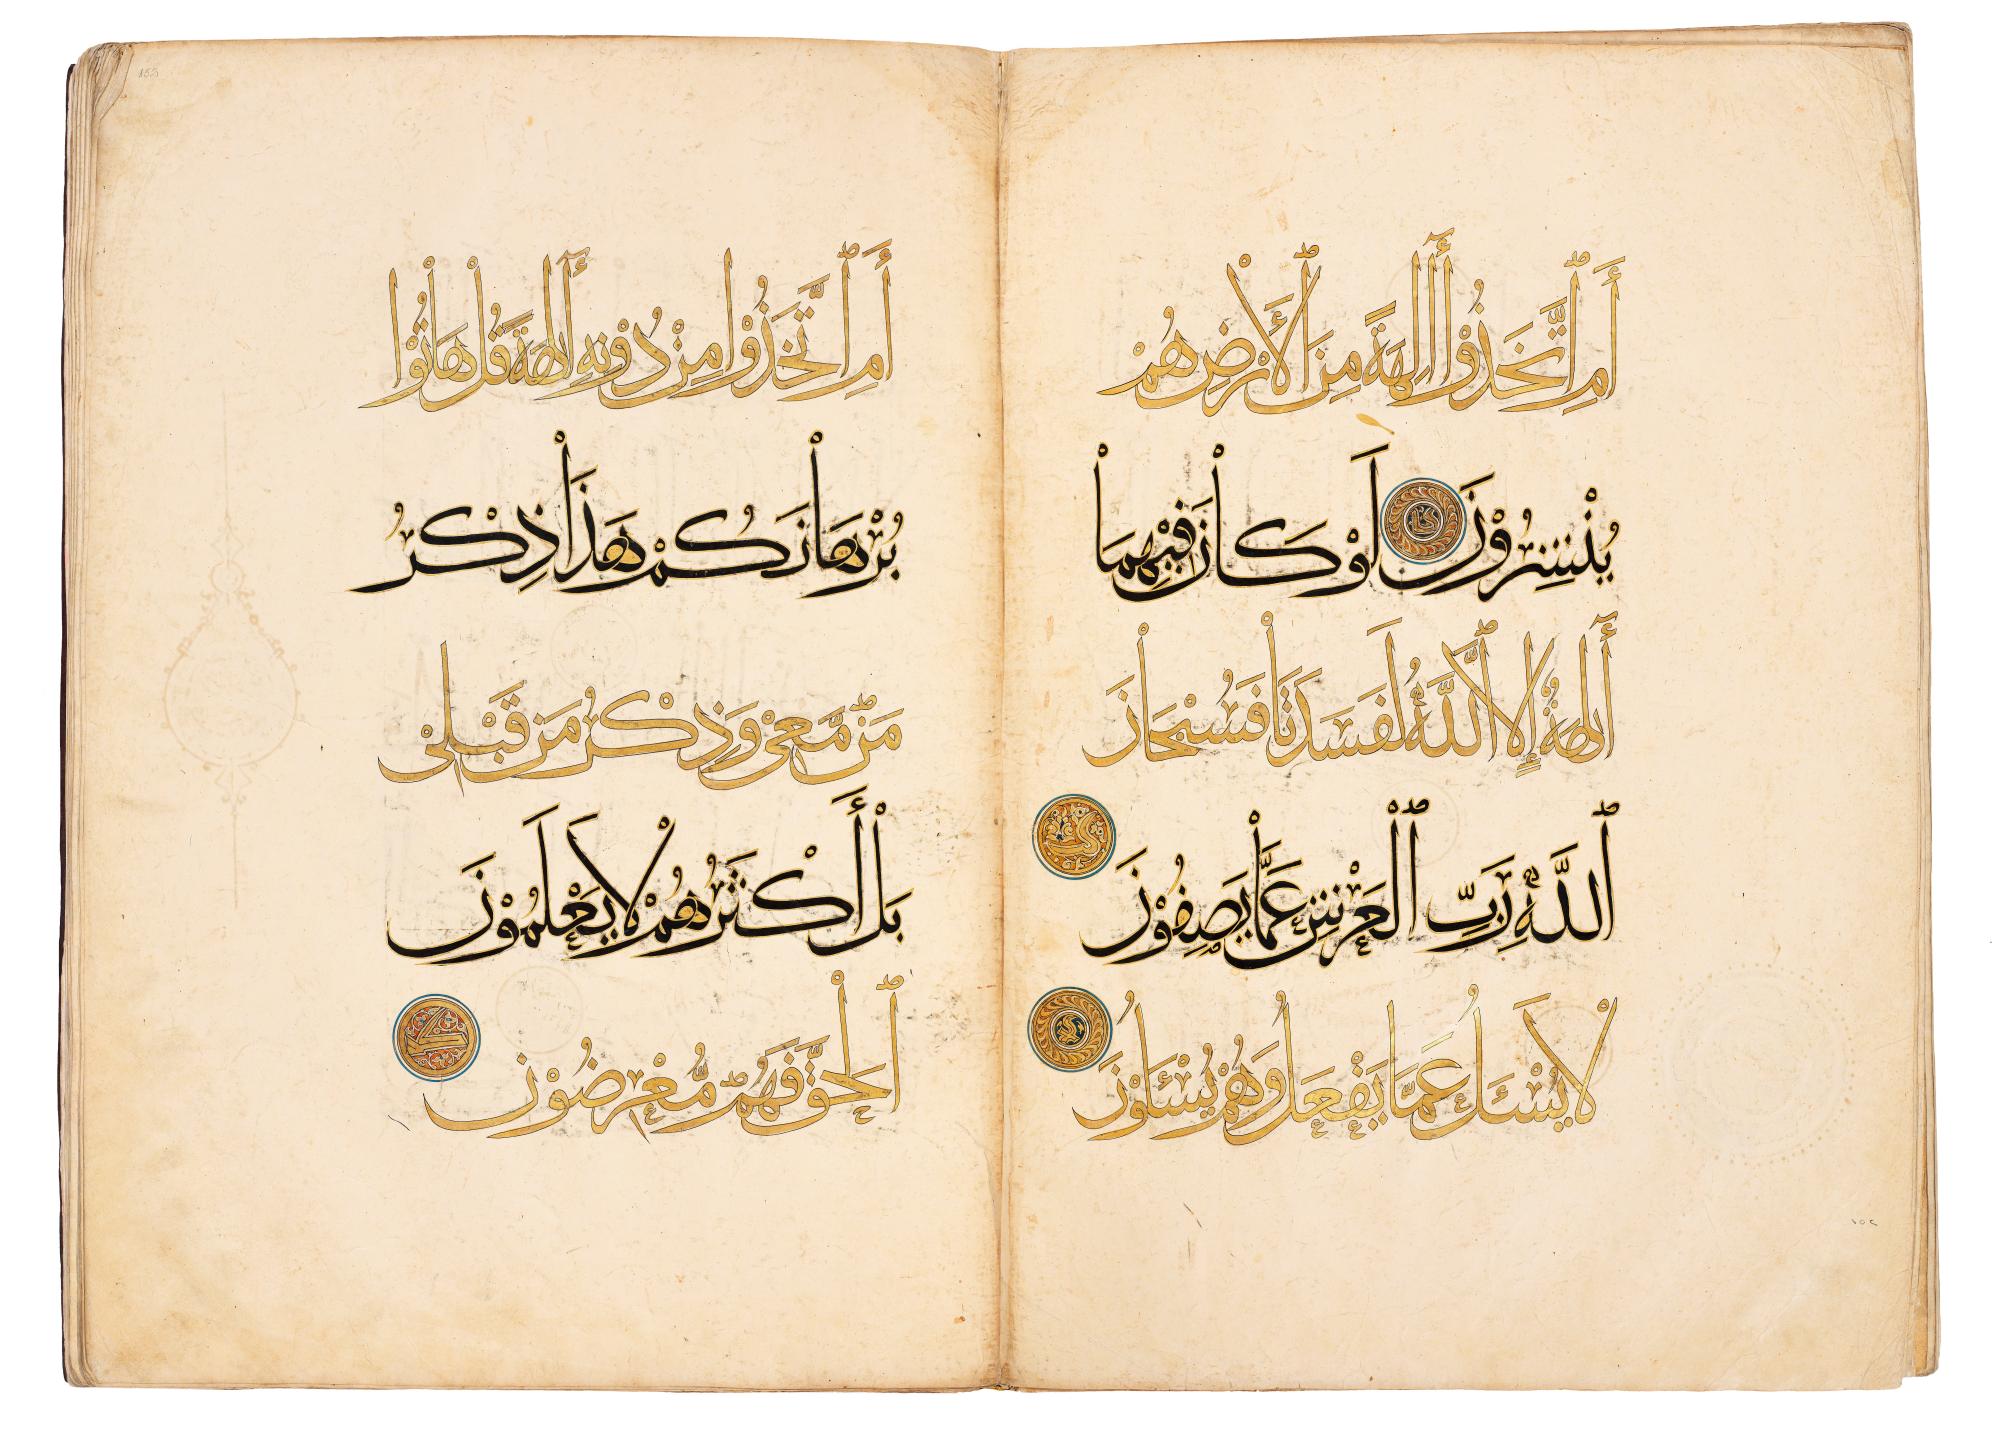 أَمِ ٱتَّخَذُوْا أَالِهَةً مِنَ ٱلْأَرْضِ هُمْ
يُنْشِرُوْنَ كا لَوْ كَانَ فِيْهِمَا
أٓلِهَةٌ إِلَّا ٱللَّهُ لَفَسَدَتَا فَسُبْحَانَ
ٱللَّهِ رَبِّ ٱلْعَرْشِ عَمَّا يَصِفُوْنَ كب
لَا يُسْئَلُ عَمَّا يَفْعَلُ وَهُمْ يُسْئَلُوْنَ
١٥٢
153
أَمِ ٱتَّخَذُوْا مِنْ دُوْنِهِ أٓلِهَةً قُلْ هَاتُوْا
بُرْهَانَكُمْ هَذَا ذِكْرُ
مَنْ مَّعِيْ وَذِكْرُ مَنْ قَبْلِيْ
بَلْ أَكْثَرُهُمْ لَا يَعْلَمُوْنَ
ٱلْحَقَّ فَهُمْ مُّعْرِضُوْنَ